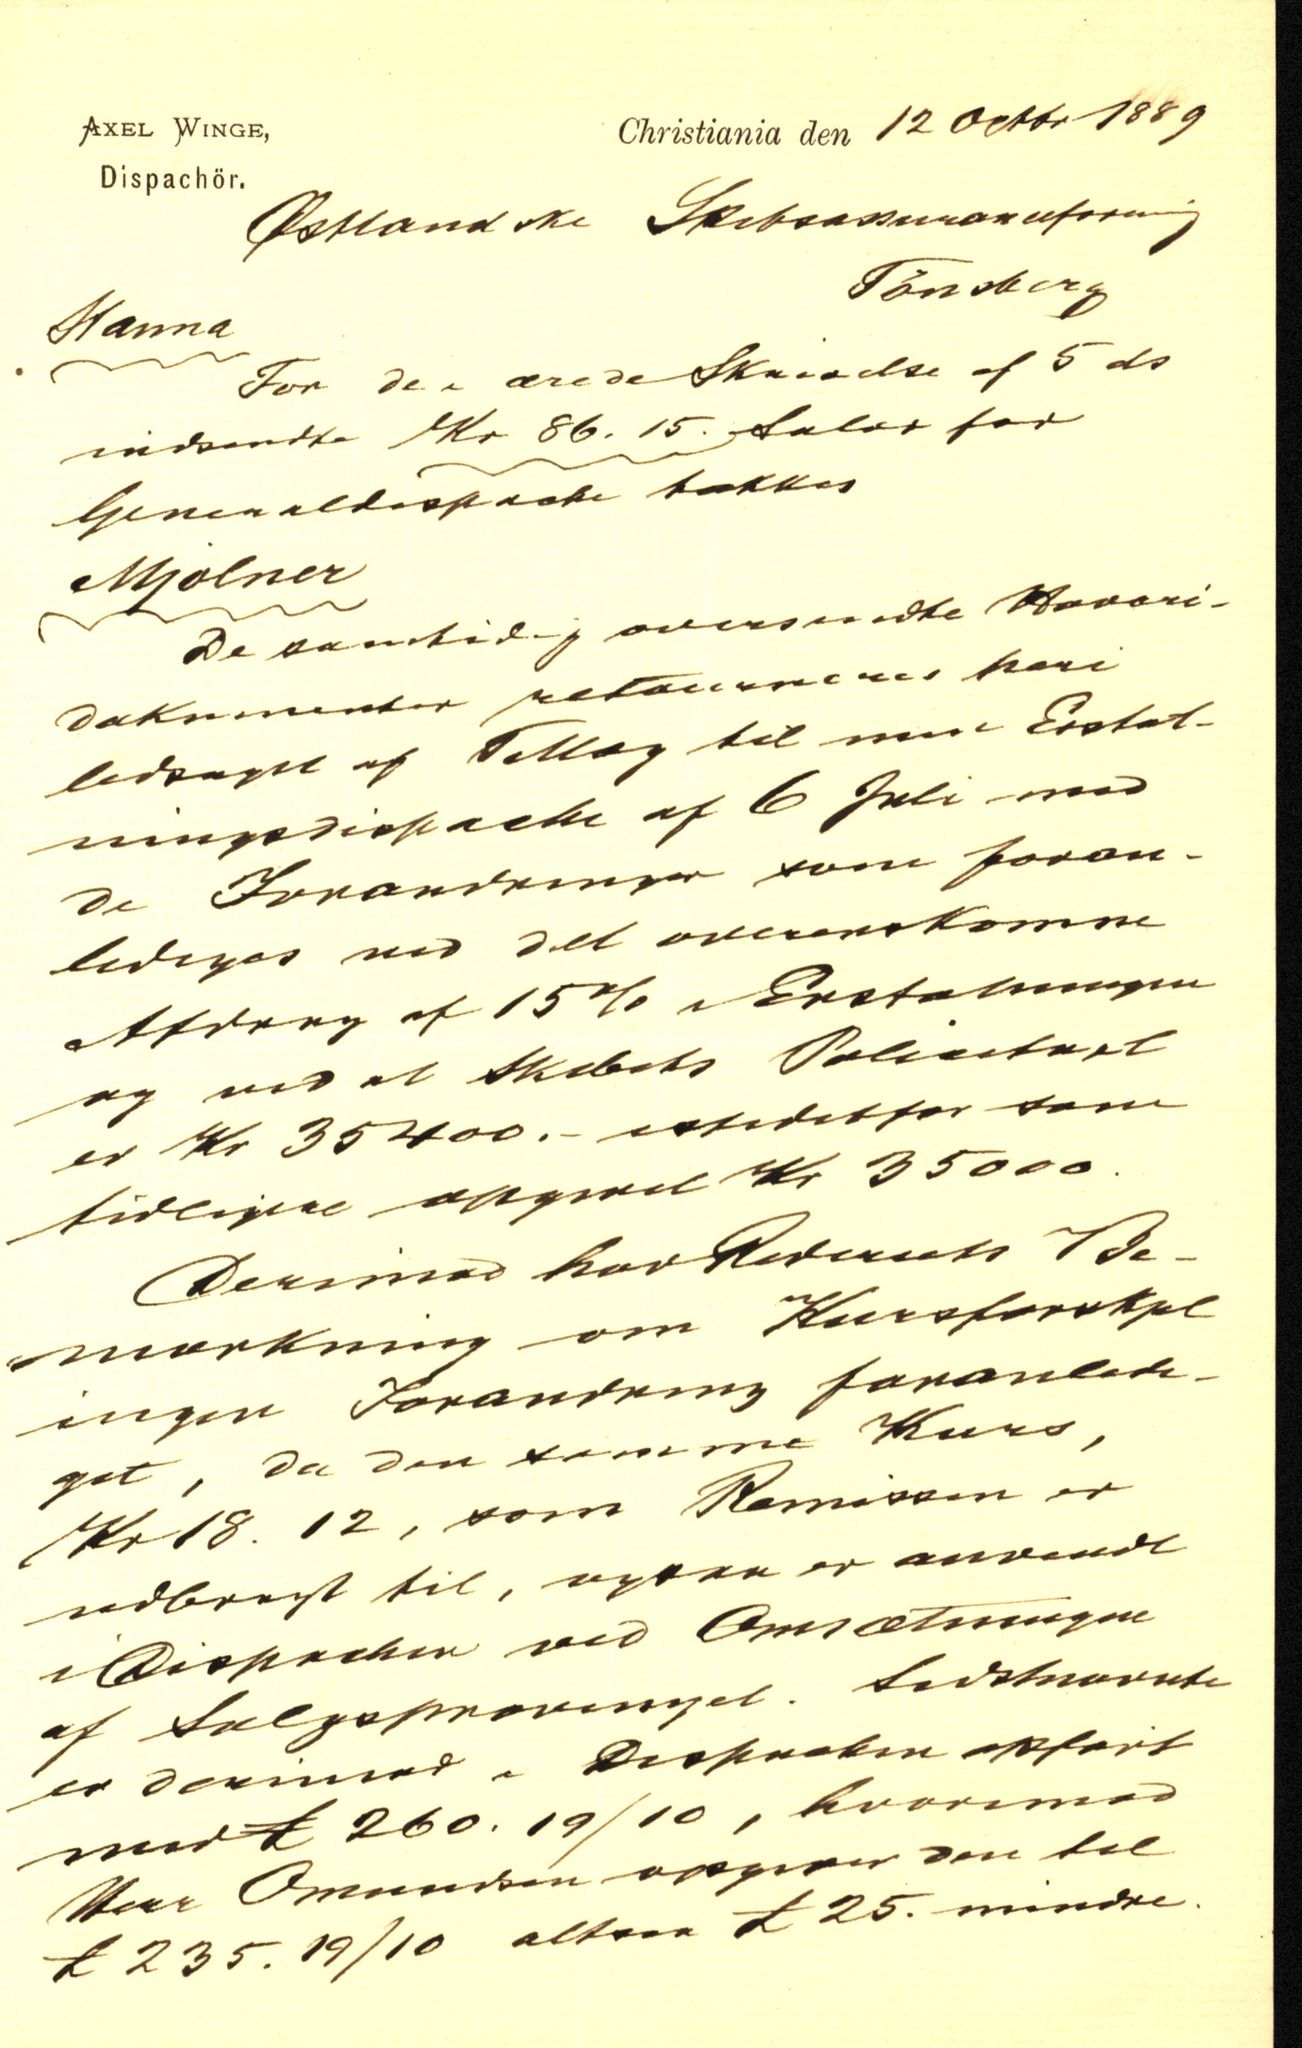 AXEL WINGE,
Dispachör.
Christiania den 12 Octbr 1889
Østlandske Skibsassuranceforening
Tönsberg
Hanna
For den ærede Skrivelse af 5 ds
indsendte Kr 86. 15. Salær for
Generaldispache takkes
Mjölner
De samtidig oversendte Havari-
dokumenter retourneres heri
ledsaget af Tillæg til min Erstat-
ningsdispache af 6 Juli med
de Forandringer som foran-
lediges ved det overenskomne
Afdrag af 15 % i Erstatningen
og ved at Skibets Policetaxt
er Kr 35400.- istedetfor som
tidligere opgivet Kr 35000.
Derimod har Rederiets Be-
mærkning om Kursforskjel
ingen Forandring foranledi-
get, da den samme Kurs,
Kr 18. 12, som Remissen er
udbragt til, ogsaa er anvendt
i Dispachen ved Omsætningen
af Salgsprovenyet. Sidstnævnte
er derimod i Dispachen opført
med £ 260. 19/10, hvorimod
Herr Omundsen opgiver den til
£ 235. 19/10 altsaa £ 25. mindre.